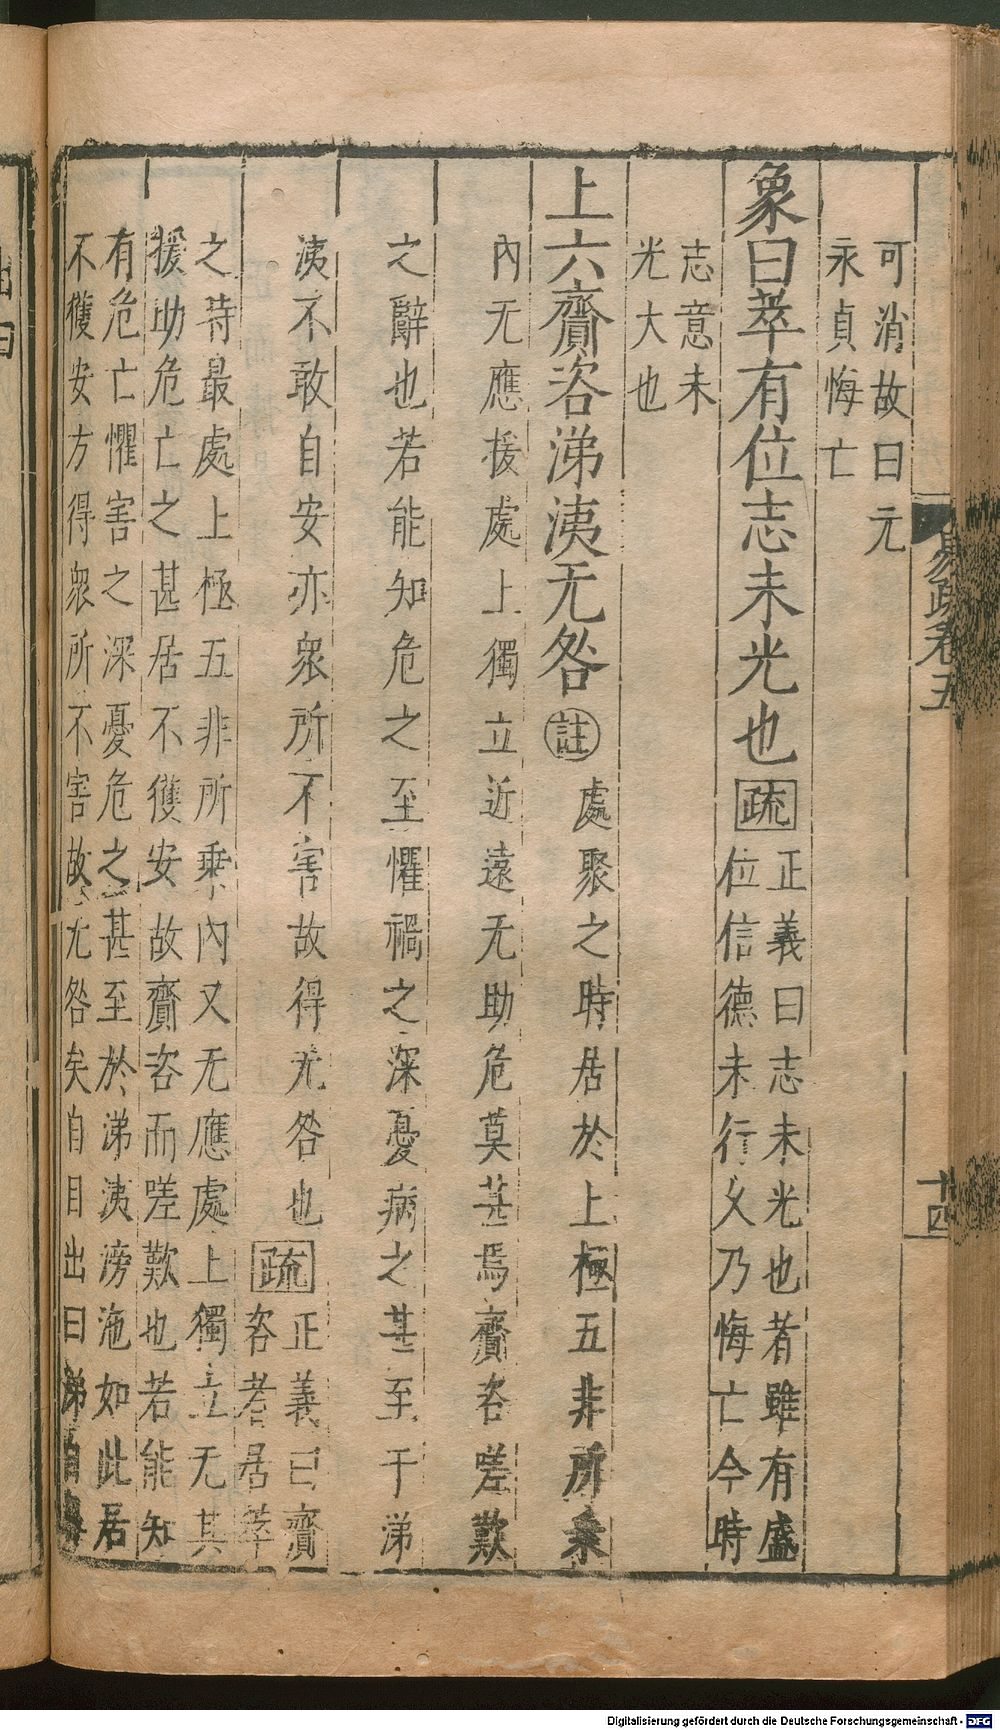 易疏卷五
十四
可消故曰元
永貞悔亡
象曰萃有位志未光也疏正義曰志未光也者雖有盛
位信德未行久乃悔亡今時
志意未
光大也
上六齎咨涕洟无咎註處聚之時居於上極五非所乘
內无應援處上獨立近遠无助危莫甚焉齎咨嗟歎
之辭也若能知危之至懼禍之深憂病之甚至于涕
洟不敢自安亦衆所不害故得无咎也疏正義曰齎
咨者居萃
之時最處上極五非所乘內又无應處上獨立无其
援助危亡之甚居不獲安故齎咨而嗟歎也若能知
有危亡懼害之深憂危之甚至於涕洟滂沲如此居
不獲安方得衆所不害故无咎矣自目出曰涕自鼻
Digitalisierung gefördert durch die Deutsche Forschungsgemeinschaft - DFG